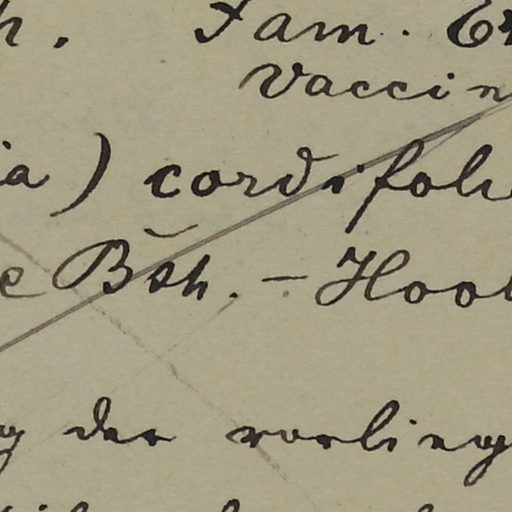 h. Fam. Er
Vaccin
ia) cordifoli
e Bŏh. – Hook
g der vorlieg